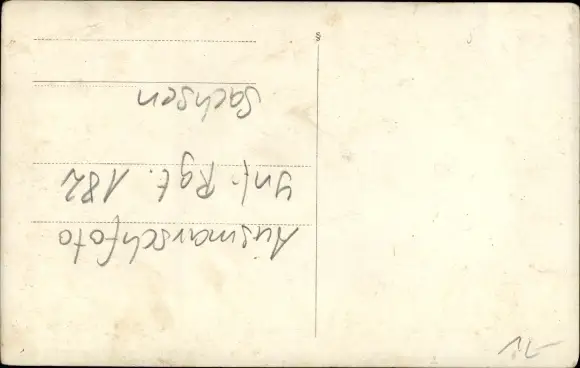 Ausmarschfoto
Inf. Rgt. 182
Sachsen
§